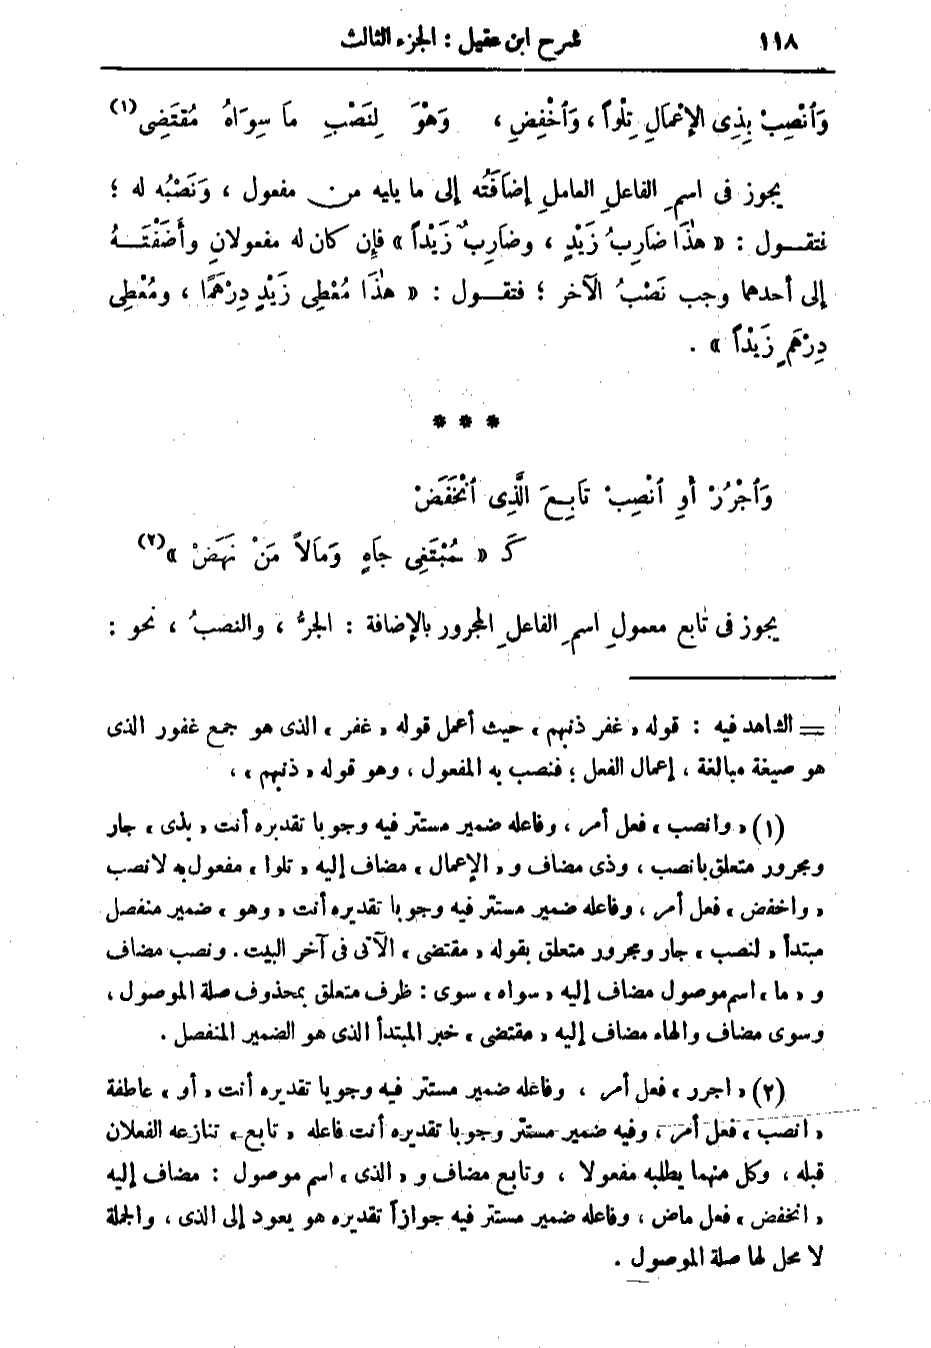 ١١٨ شرح ابن عقيل : الجزء الثالث
وَٱنْصِبْ بِذِى الإِعْمَالِ تِلْواً ، وَٱخْفِضِ ، وَهْوَ لِنَصْبِ مَا سِوَاهُ مُقْتَضِى (١)
يجوز فى اسمِ الفاعلِ العاملِ إضَافَتُه إلى ما يليه من مفعول ، وَنَصْبُه له ؛
فتقول : « هٰذَا ضَارِبُ زَيْدٍ ، وضَارِبٌ زَيْداً » فإن كان له مفعولانِ وأَضَفْتَهُ
إلى أحدهما وجب نَصْبُ الآخر ؛ فتقول : « هٰذَا مُعْطِى زَيْدٍ دِرْهَمًا ، ومُعْطِى
دِرْهَمٍ زَيْداً » .
* * *
وَٱجْرُرْ أَوِ ٱنْصِبْ تَابِعَ الَّذِى ٱنْخَفَضْ
كَـ « مُبْتَغِى جَاهٍ وَمَالاً مَنْ نَهَضْ » (٢)
يجوز فى تابع معمولِ اسمِ الفاعلِ المجرور بالإضافة : الجرُّ ، والنصبُ ، نحو :
= الشاهد فيه : قوله « غفر ذنبهم » حيث أعمل قوله « غفر » الذى هو جمع غفور الذى
هو صيغة مبالغة ، إعمال الفعل ؛ فنصب به المفعول ، وهو قوله « ذنبهم » ،
(١) « وانصب » فعل أمر ، وفاعله ضمير مستتر فيه وجوبا تقديره أنت « بذى » جار
ومجرور متعلق بانصب ، وذى مضاف و « الإعمال » مضاف إليه « تلوا » مفعول به لانصب
« واخفض » فعل أمر ، وفاعله ضمير مستتر فيه وجوبا تقديره أنت « وهو » ضمير منفصل
مبتدأ « لنصب » جار ومجرور متعلق بقوله « مقتضى » الآتى فى آخر البيت . ونصب مضاف
و « ما » اسم موصول مضاف إليه « سواه » سوى : ظرف متعلق بمحذوف صلة الموصول ،
وسوى مضاف والهاء مضاف إليه « مقتضى » خبر المبتدأ الذى هو الضمير المنفصل .
(٢) « اجرر » فعل أمر ، وفاعله ضمير مستتر فيه وجوبا تقديره أنت « أو » عاطفة
« انصب » فعل أمر ، وفيه ضمير مستتر وجوبا تقديره أنت فاعله « تابع » تنازعه الفعلان
قبله ، وكل منهما يطلبه مفعولا ، وتابع مضاف و « الذى » اسم موصول : مضاف إليه
« انخفض » فعل ماض ، وفاعله ضمير مستتر فيه جوازاً تقديره هو يعود إلى الذى ، والجملة
لا محل لها صلة الموصول .